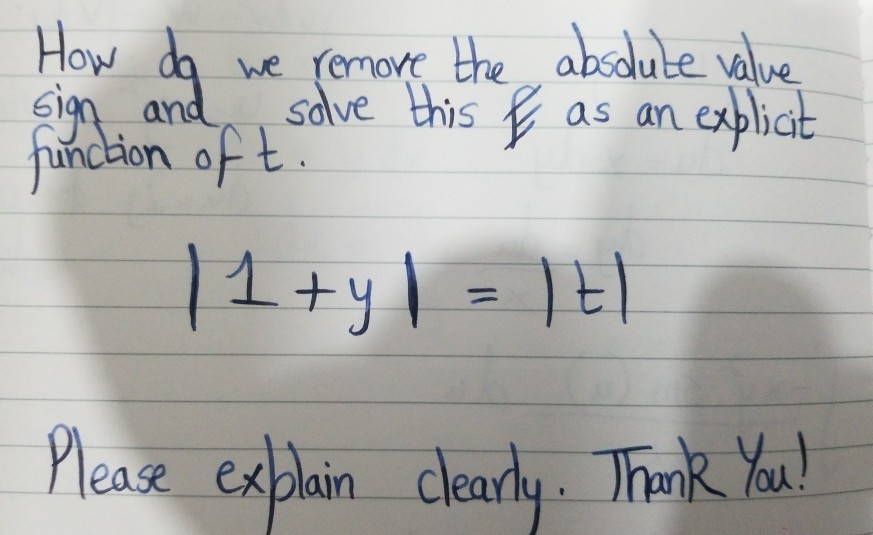 How do we remove the absolute value
sign and solve this as an explicit
function of t.
|1 + y| = |t|
Please explain clearly. Thank You!